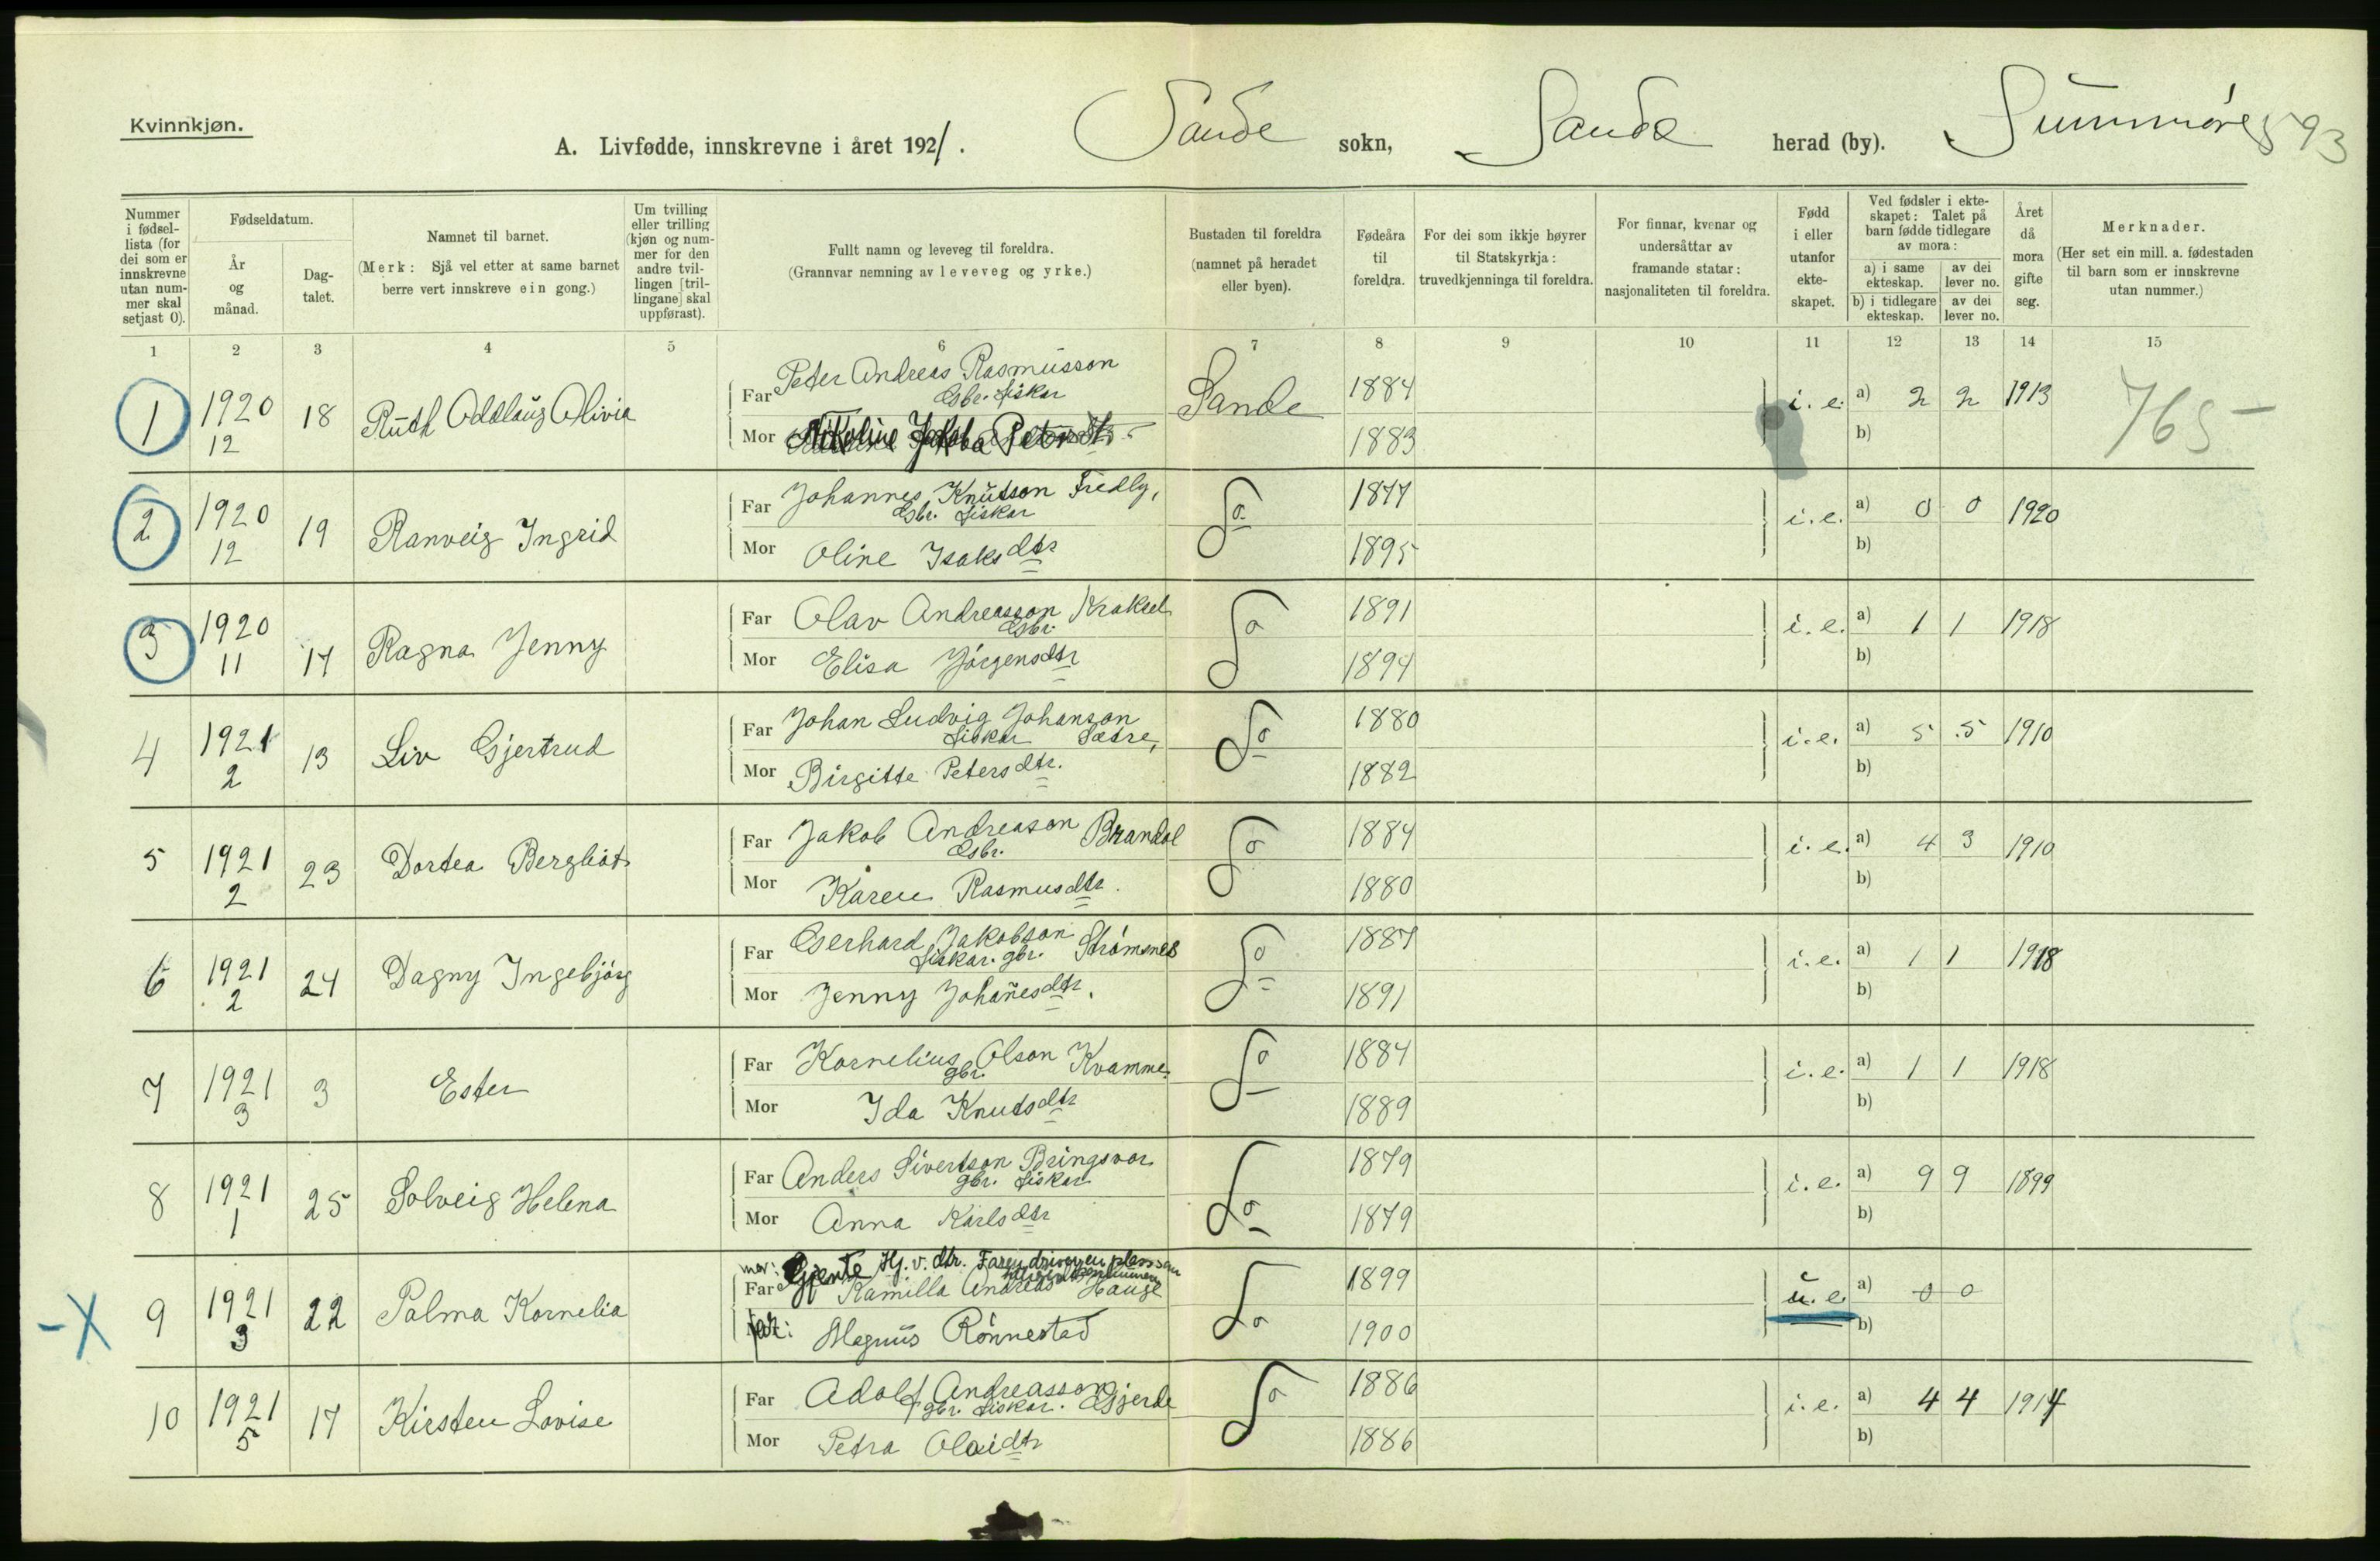 Kvinnkjøn.
A. Livfødde, innskrevne i året 1921. Sande sokn, Sande herad (by). Sunnmøre 593
Nummer i fødsel-lista (for dei som er innskrevne utan num-mer skal setjast 0).
Fødseldatum.
År og månad.
Dag-talet.
Namnet til barnet.
(Merk: Sjå vel etter at same barnet berre vert innskreve ein gong.)
Um tvilling eller trilling (kjøn og num-mer for den andre tvil-lingen [tril-lingane] skal uppførast).
Fullt namn og leveveg til foreldra.
(Grannvar nemning av leveveg og yrke.)
Bustaden til foreldra (namnet på heradet eller byen).
Fødeåra til foreldra.
For dei som ikkje høyrer til Statskyrkja: truvedkjenninga til foreldra.
For finnar, kvenar og undersåttar av framande statar: nasjonaliteten til foreldra.
Fødd i eller utanfor ekte-skapet.
Ved fødsler i ekte-skapet: Talet på barn fødde tidlegare av mora:
a) i same ekteskap.
av dei lever no.
b) i tidlegare ekteskap.
av dei lever no.
Året då mora gifte seg.
Merknader.
(Her set ein mill. a. fødestaden til barn som er innskrevne utan nummer.)
1 2 3 4 5 6 7 8 9 10 11 12 13 14 15
1 1920 12 18 Ruth Oddlaug Olivia Far Peter Andreas Rasmusson Gbr. fiskar Sande 1884 i. e. a) 2 2 1913 765 –
Mor Nikoline Jakoba Petersdtr 1883 b)
2 1920 12 19 Ranveig Ingrid Far Johannes Knutson Fredly, Gbr. fiskar do 1877 i. e. a) 0 0 1920
Mor Oline Isaksdtr 1895 b)
3 1920 11 17 Ragna Jenny Far Olav Andreasson Kraksel Gbr. do 1891 i. e. a) 1 1 1918
Mor Elisa Jørgensdtr 1894 b)
4 1921 2 13 Liv Gjertrud Far Johan Ludvig Johanson fiskar Sætre, do 1880 i. e. a) 5 5 1910
Mor Birgitte Petersdtr. 1882 b)
5 1921 2 23 Dortea Bergliot Far Jakob Andreason Brandal Gbr. do 1884 i. e. a) 4 3 1910
Mor Karen Rasmusdtr. 1880 b)
6 1921 2 24 Dagny Ingebjørg Far Gerhard Jakobson Strømsnes fiskar. gbr. do 1887 i. e. a) 1 1 1918
Mor Jenny Johañesdtr. 1891 b)
7 1921 3 3 Ester Far Kornelius Olson Kvamme. gbr. do 1884 i. e. a) 1 1 1918
Mor Ida Knutsdtr 1889 b)
8 1921 1 25 Solveig Helena Far Anders Sivertson Bringsvor gbr. fiskar do 1879 i. e. a) 9 9 1899
Mor Anna Karlsdtr 1879 b)
mor: Gjente Hj. v. dtr. Faren driver en plass som
– X 9 1921 3 22 Palma Kornelia Far Kamilla Andreas Hauge do 1899 u. e. a) 0 0
far: Magnus Rønnestad 1900 b)
10 1921 5 17 Kirsten Lovise Far Adolf Andreasson Gjerde gbr. fiskar. do 1886 i. e. a) 4 4 1914
Mor Petra Olaidtr 1886 b)